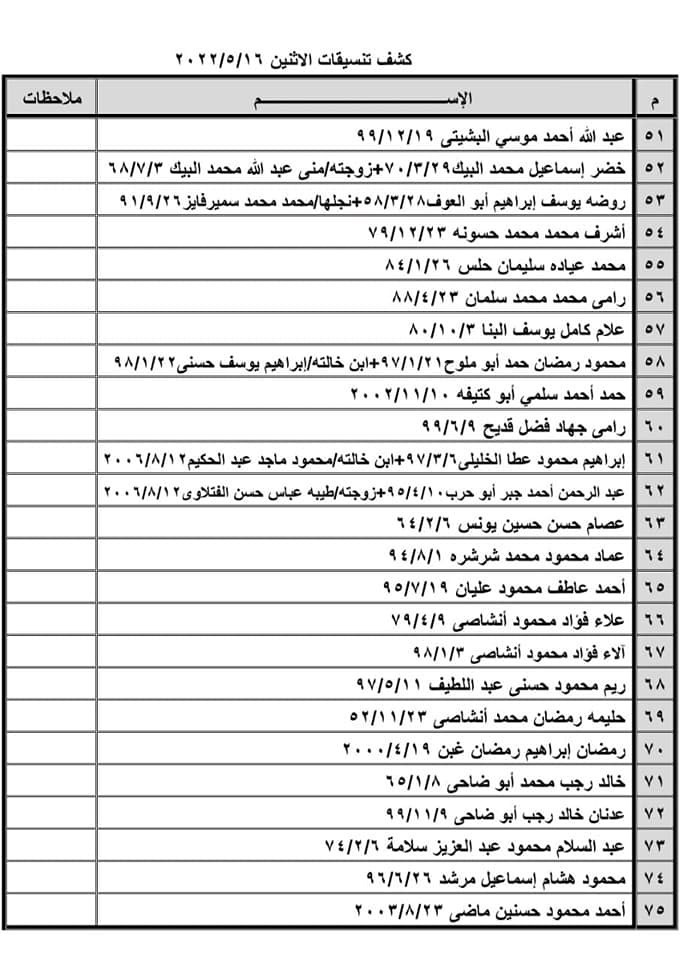 كشف تنسيقات الاثنين ٢٠٢٢/٥/١٦
م الإســــــــم ملاحظات
٥١ عبد الله أحمد موسي البشيتى ٩٩/١٢/١٩
٥٢ خضر إسماعيل محمد البيك٧٠/٣/٢٩+زوجته/منى عبد الله محمد البيك ٦٨/٧/٣
٥٣ روضه يوسف إبراهيم أبو العوف٥٨/٣/٢٨+نجلها/محمد محمد سميرفايز٩١/٩/٢٦
٥٤ أشرف محمد محمد حسونه ٧٩/١٢/٢٣
٥٥ محمد عياده سليمان حلس ٨٤/١/٢٦
٥٦ رامى محمد محمد سلمان ٨٨/٤/٢٣
٥٧ علام كامل يوسف البنا ٨٠/١٠/٣
٥٨ محمود رمضان حمد أبو ملوح٩٧/١/٢١+ابن خالته/إبراهيم يوسف حسنى٩٨/١/٢٢
٥٩ حمد أحمد سلمي أبو كتيفه ٢٠٠٢/١١/١٠
٦٠ رامى جهاد فضل قديح ٩٩/٦/٩
٦١ إبراهيم محمود عطا الخليلى٩٧/٣/٦+ابن خالته/محمود ماجد عبد الحكيم٢٠٠٦/٨/١٢
٦٢ عبد الرحمن أحمد جبر أبو حرب٩٥/٤/١٠+زوجته/طيبه عباس حسن الفتلاوى٢٠٠٦/٨/١٢
٦٣ عصام حسن حسين يونس ٦٤/٢/٦
٦٤ عماد محمود محمد شرشره ٩٤/٨/١
٦٥ أحمد عاطف محمود عليان ٩٥/٧/١٩
٦٦ علاء فؤاد محمود أنشاصى ٧٩/٤/٩
٦٧ آلاء فؤاد محمود أنشاصى ٩٨/١/٣
٦٨ ريم محمود حسنى عبد اللطيف ٩٧/٥/١١
٦٩ حليمه رمضان محمد أنشاصى ٥٢/١١/٢٣
٧٠ رمضان إبراهيم رمضان غبن ٢٠٠٠/٤/١٩
٧١ خالد رجب محمد أبو ضاحى ٦٥/١/٨
٧٢ عدنان خالد رجب أبو ضاحى ٩٩/١١/٩
٧٣ عبد السلام محمود عبد العزيز سلامة ٧٤/٢/٦
٧٤ محمود هشام إسماعيل مرشد ٩٦/٦/٢٦
٧٥ أحمد محمود حسنين ماضى ٢٠٠٣/٨/٢٣